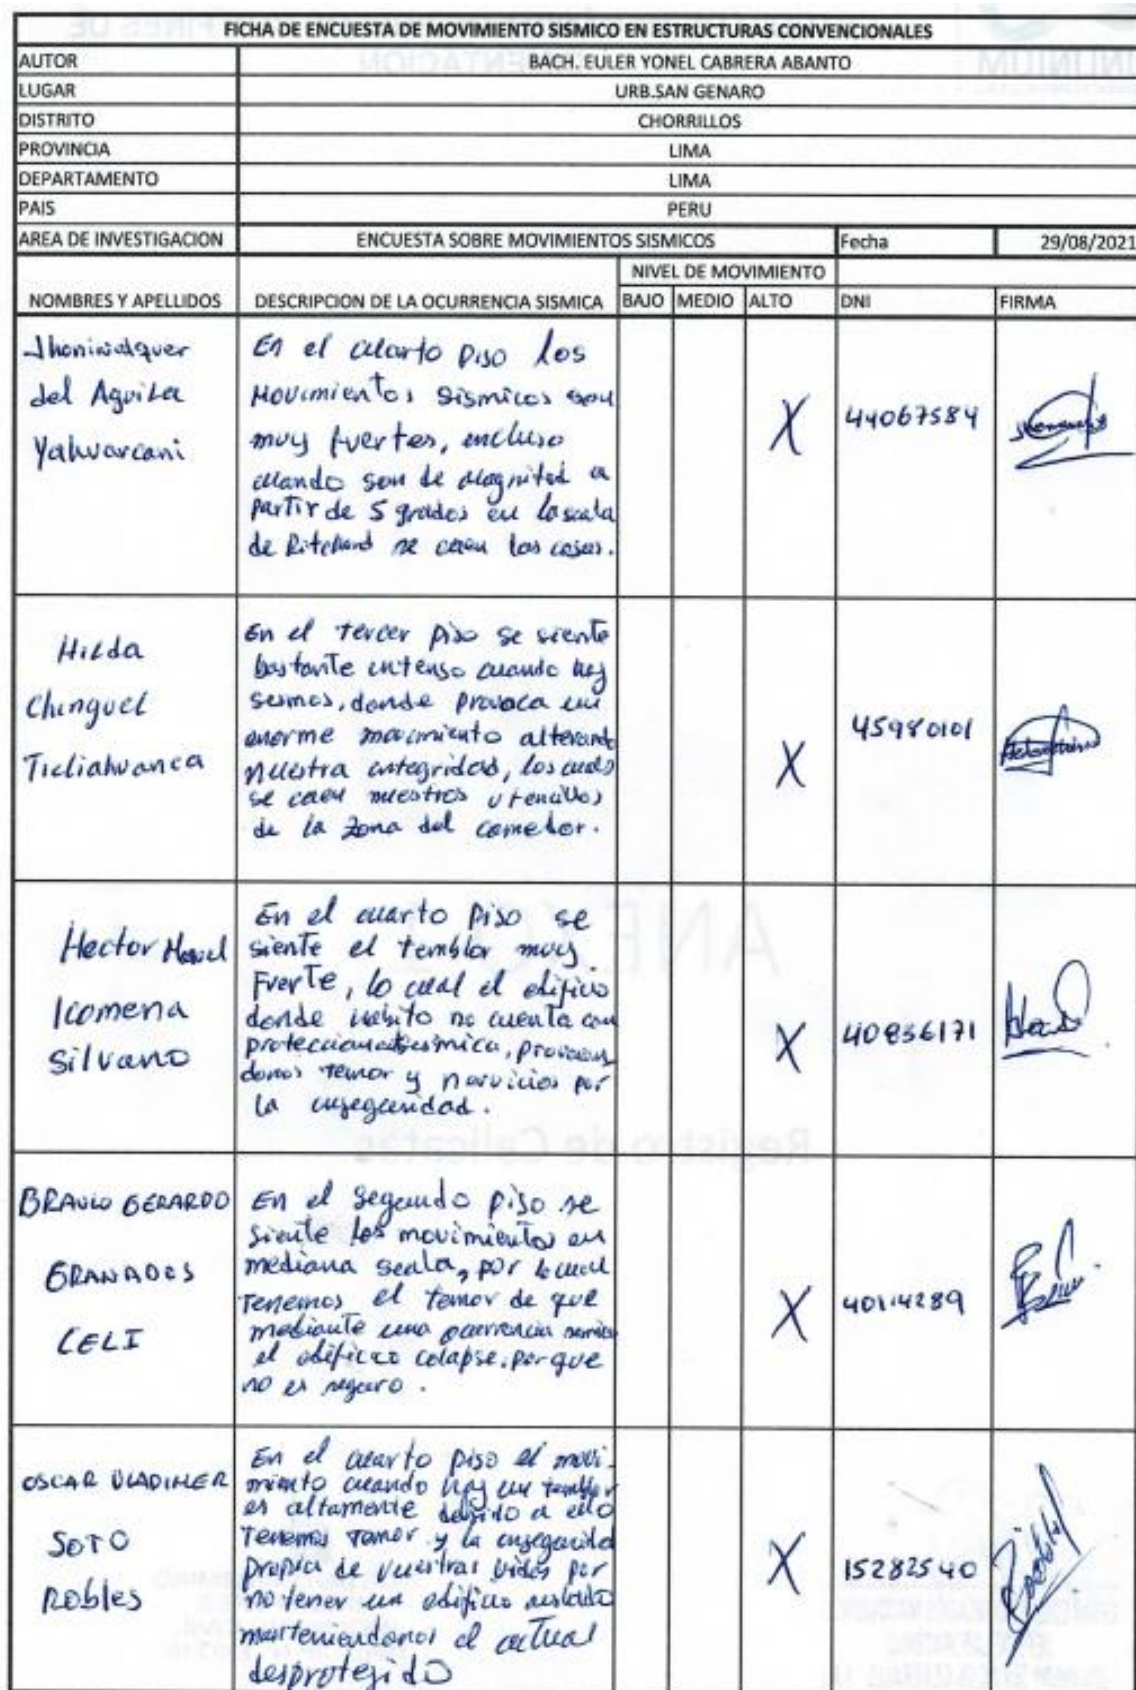 FICHA DE ENCUESTA DE MOVIMIENTO SISMICO EN ESTRUCTURAS CONVENCIONALES
AUTOR BACH. EULER YONEL CABRERA ABANTO
LUGAR URB.SAN GENARO
DISTRITO CHORRILLOS
PROVINCIA LIMA
DEPARTAMENTO LIMA
PAIS PERU
AREA DE INVESTIGACION ENCUESTA SOBRE MOVIMIENTOS SISMICOS Fecha 29/08/2021
NIVEL DE MOVIMIENTO
NOMBRES Y APELLIDOS DESCRIPCION DE LA OCURRENCIA SISMICA BAJO MEDIO ALTO DNI FIRMA
del Aguila
Yahuarcani
En el cuarto piso los
Movimientos sismicos son
muy fuertes, incluso
cuando son de magnitud a
partir de 5 grados en la scala
de Ritchard se caen las cosas.
X
44067584
Hilda
Chinguel
Ticliahuanca
En el tercer piso se siente
bastante intenso cuando hay
sismos, donde provoca un
enorme movimiento alterando
nuestra integridad, los cuales
se caen nuestros utencilios
de la zona del comedor.
X
45980101
Hector
Icomena
Silvano
En el cuarto piso se
siente el temblor muy
Fuerte, lo cual el edificio
donde habito no cuenta con
proteccion , provocan
donos temor y por
la inseguridad.
X
40836171
BRAULIO GERARDO
GRANADOS
CELI
En el segundo piso se
siente los movimientos en
mediana scala, por lo cual
Tenemos el temor de que
mediante una ocurrencia
el edificio colapse, porque
no es seguro.
X
40114289
OSCAR VLADIMER
SOTO
Robles
En el cuarto piso el movi-
miento cuando hay un temblor
es altamente debido a ello
Tenemos temor y la inseguridad
propia de nuestras vidas por
no tener un edificio aislado
manteniendonos el actual
desprotegido
X
15282540